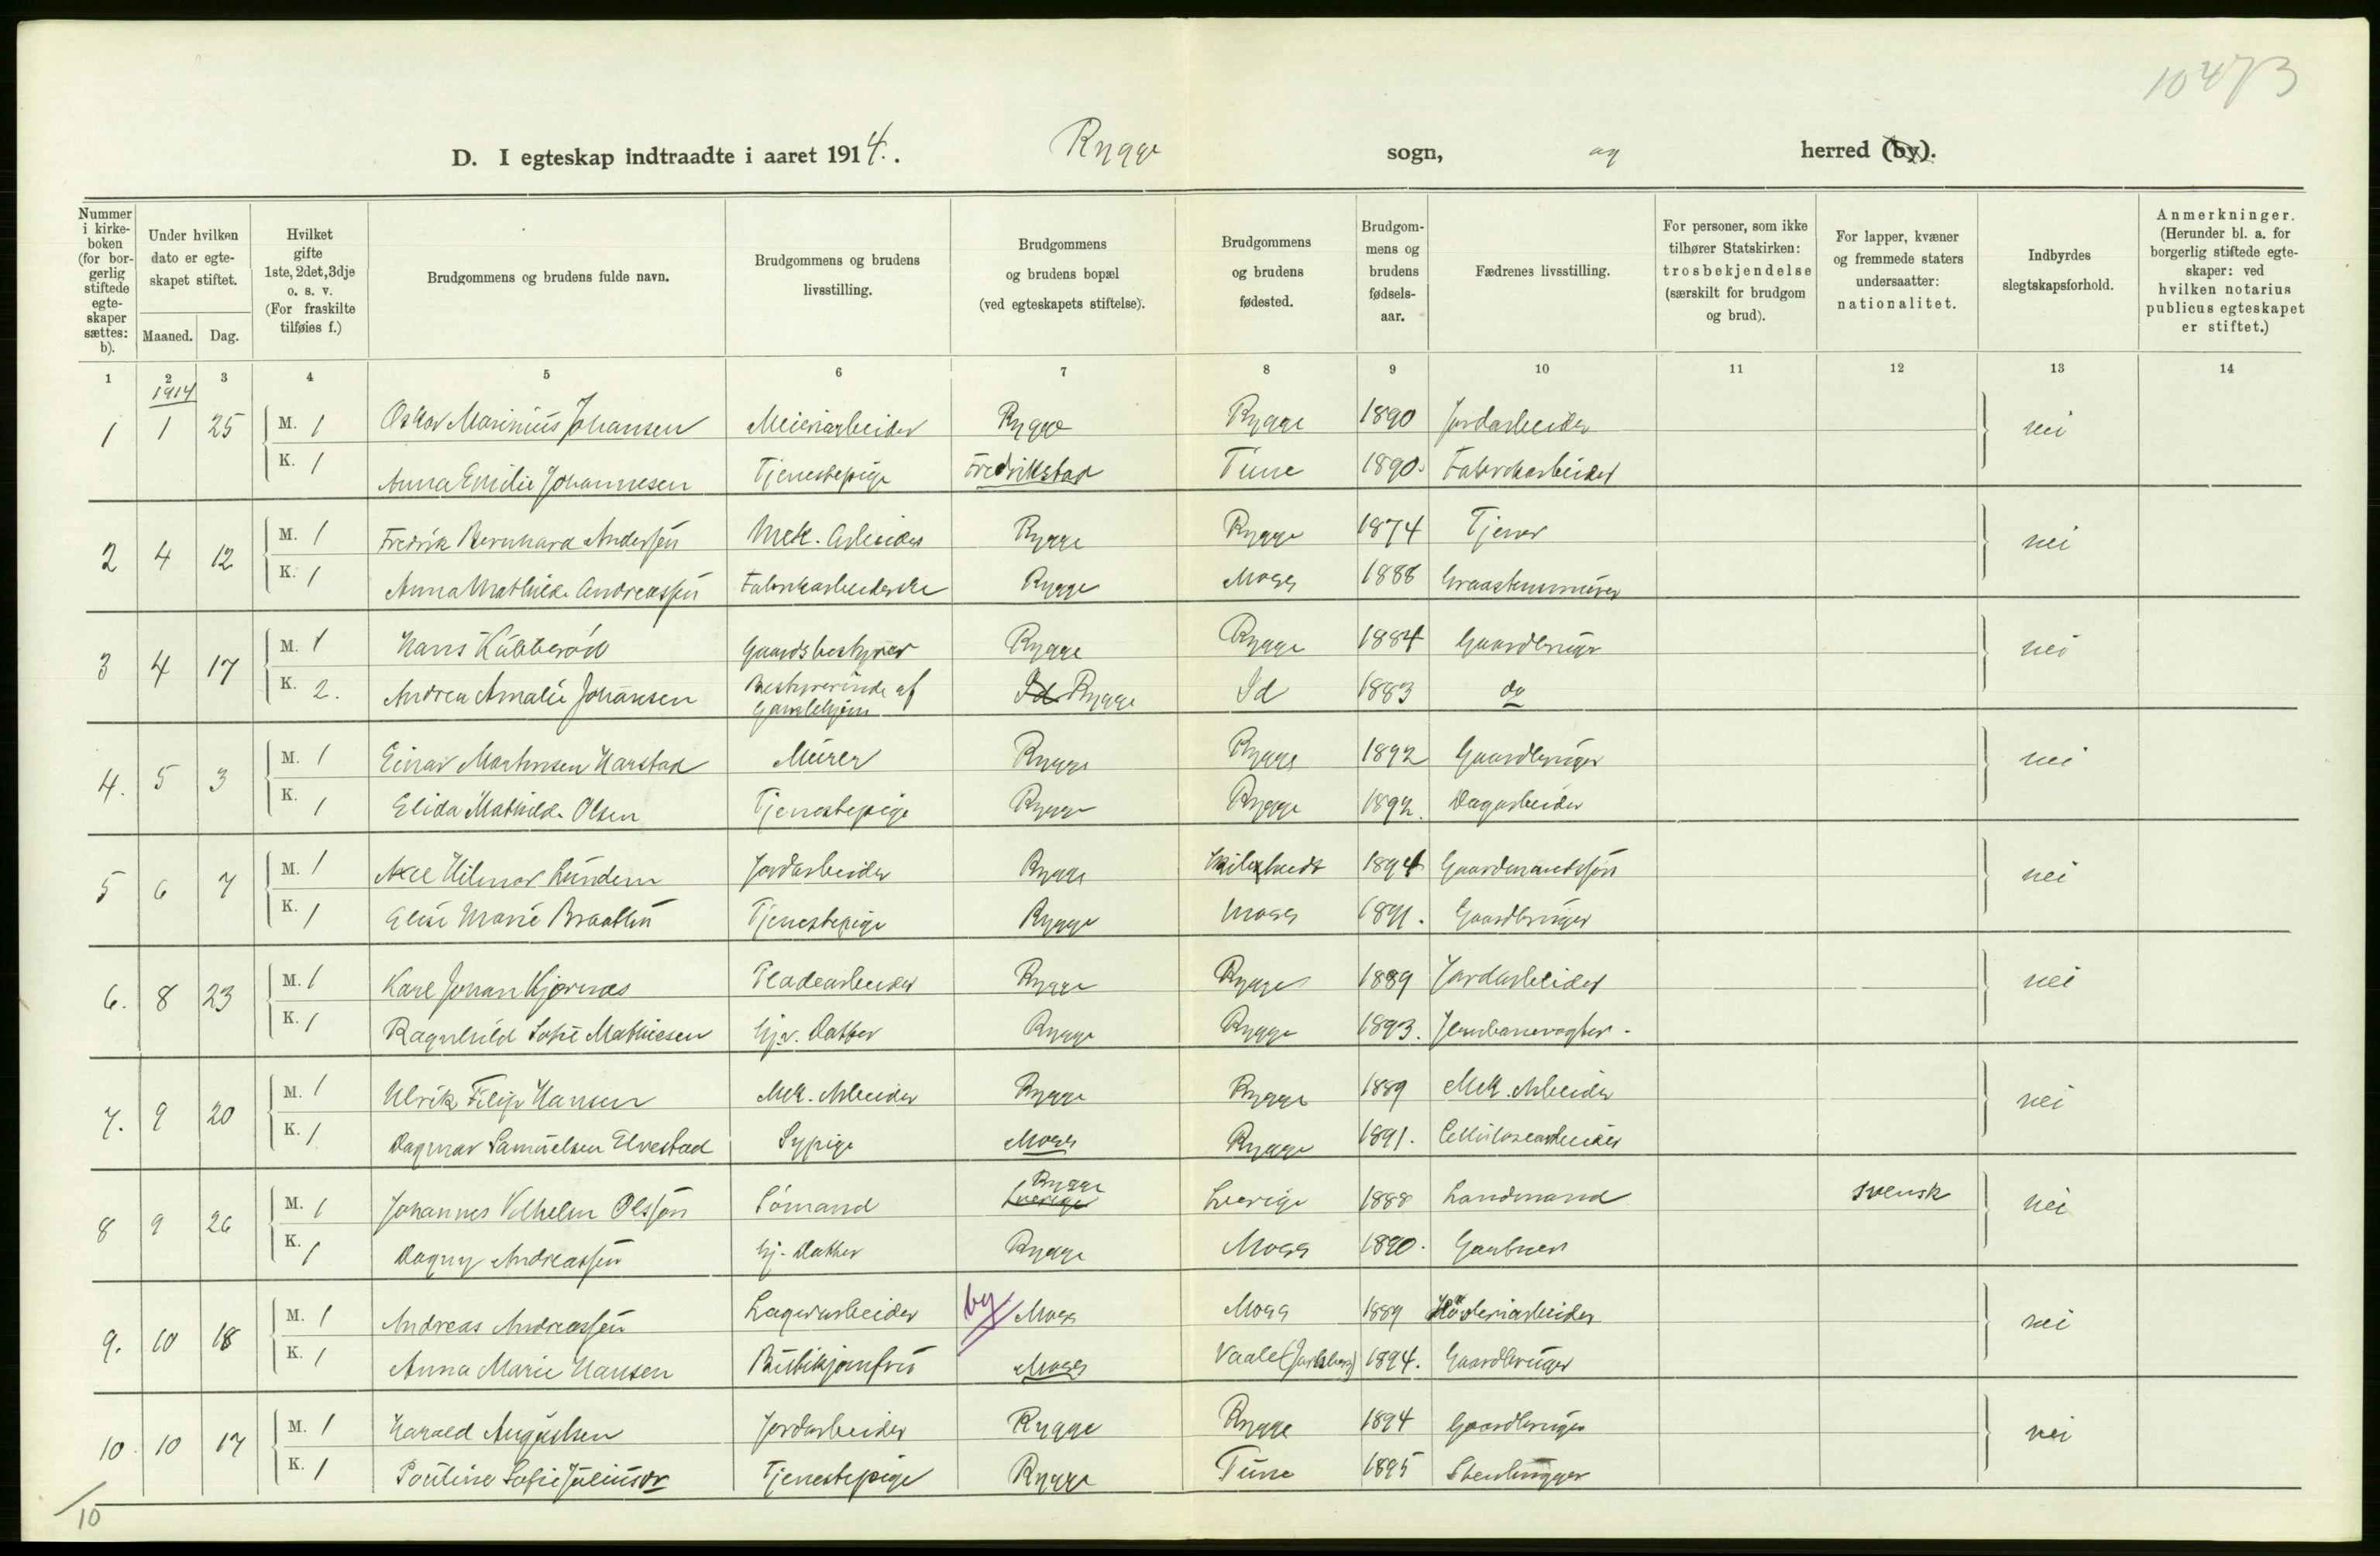 10473
D. I egteskap indtraadte i aaret 1914. Rygge sogn, og herred (by).
Nummer i kirkeboken (for borgerlig stiftede egteskaper sættes: b).
Under hvilken dato er egteskapet stiftet.
Maaned. Dag.
Hvilket gifte 1ste, 2det, 3dje o. s. v. (For fraskilte tilføies f.)
Brudgommens og brudens fulde navn.
Brudgommens og brudens livsstilling.
Brudgommens og brudens bopæl (ved egteskapets stiftelse).
Brudgommens og brudens fødested.
Brudgommens og brudens fødselsaar.
Fædrenes livsstilling.
For personer, som ikke tilhører Statskirken: trosbekjendelse (særskilt for brudgom og brud).
For lapper, kvæner og fremmede staters undersaatter: nationalitet.
Indbyrdes slegtskapsforhold.
Anmerkninger. (Herunder bl. a. for borgerlig stiftede egteskaper: ved hvilken notarius publicus egteskapet er stiftet.)
1 2 3 4 5 6 7 8 9 10 11 12 13 14
1914
1 1 25 M. 1 Oskar Marinius Johansen Meieriarbeider Rygge Rygge 1890 Jordarbeider nei
K. 1 Anna Emilie Johannesen Tjenestepige Fredrikstad Tune 1890. Fabrikarbeider
2 4 12 M. 1 Fredrik Bernhard Anderssen Mek. Arbeider Rygge Rygge 1874 Tjener nei
K. 1 Anna Mathilde Andreassen Fabrikarbeiderske Rygge Moss 1888 Graastensmurer
3 4 17 M. 1 Hans Kubberød Gaardsbestyrer Rygge Rygge 1884 Gaardbruger nei
K. 2. Andrea Amalie Johansen Bestyrerinde af Gamlehjem Id Rygge Id 1883 do
4. 5 3 M. 1 Einar Mortensen Harstad Murer Rygge Rygge 1892 Gaardbruger nei
K. 1 Elida Mathilde Olsen Tjenestepige Rygge Rygge 1892. Dagarbeider
5 6 7 M. 1 Axel Hilmar Lundem Jordarbeider Rygge 1894 Gaardmandssøn nei
K. 1 Elise Marie Braathen Tjenestepige Rygge Moss 1891. Gaardbruger
6. 8 23 M. 1 Karl Johan Kjærnæs Pladearbeider Rygge Rygge 1889 Jordarbeider nei
K. 1 Ragnhild Sofie Mathiesen Hjv. Datter Rygge Rygge 1893. Jernbanevogter -
7. 9 20 M. 1 Ulrik Filip Hansen Mek. Arbeider Rygge Rygge 1889 Mek. Arbeider nei
K. 1 Dagmar Samuelsen Elvestad Sypige Moss Rygge 1891. Cellulosearbeider
8 9 26 M. 1 Johannes Vilhelm Olsson Sømand Rygge Sverige Sverige 1888 Landmand svensk nei
K. 1 Dagny Andreassen Hj. Datter Rygge Moss 1890. Gartner
9. 10 18 M. 1 Andreas Andreassen Lagerarbeider by Moss Moss 1889 Høvleriarbeider nei
K. 1 Anna Marie Hansen Butikjomfru Moss Vaale (Jarlsberg) 1894. Gaardbruger
10. 10 17 M. 1 Harald Augustsen Jordarbeider Rygge Rygge 1894 Gaardbruger nei
K. 1 Pauline Sofie Juliusdr Tjenestepige Rygge Tune 1895 Stenhugger
10